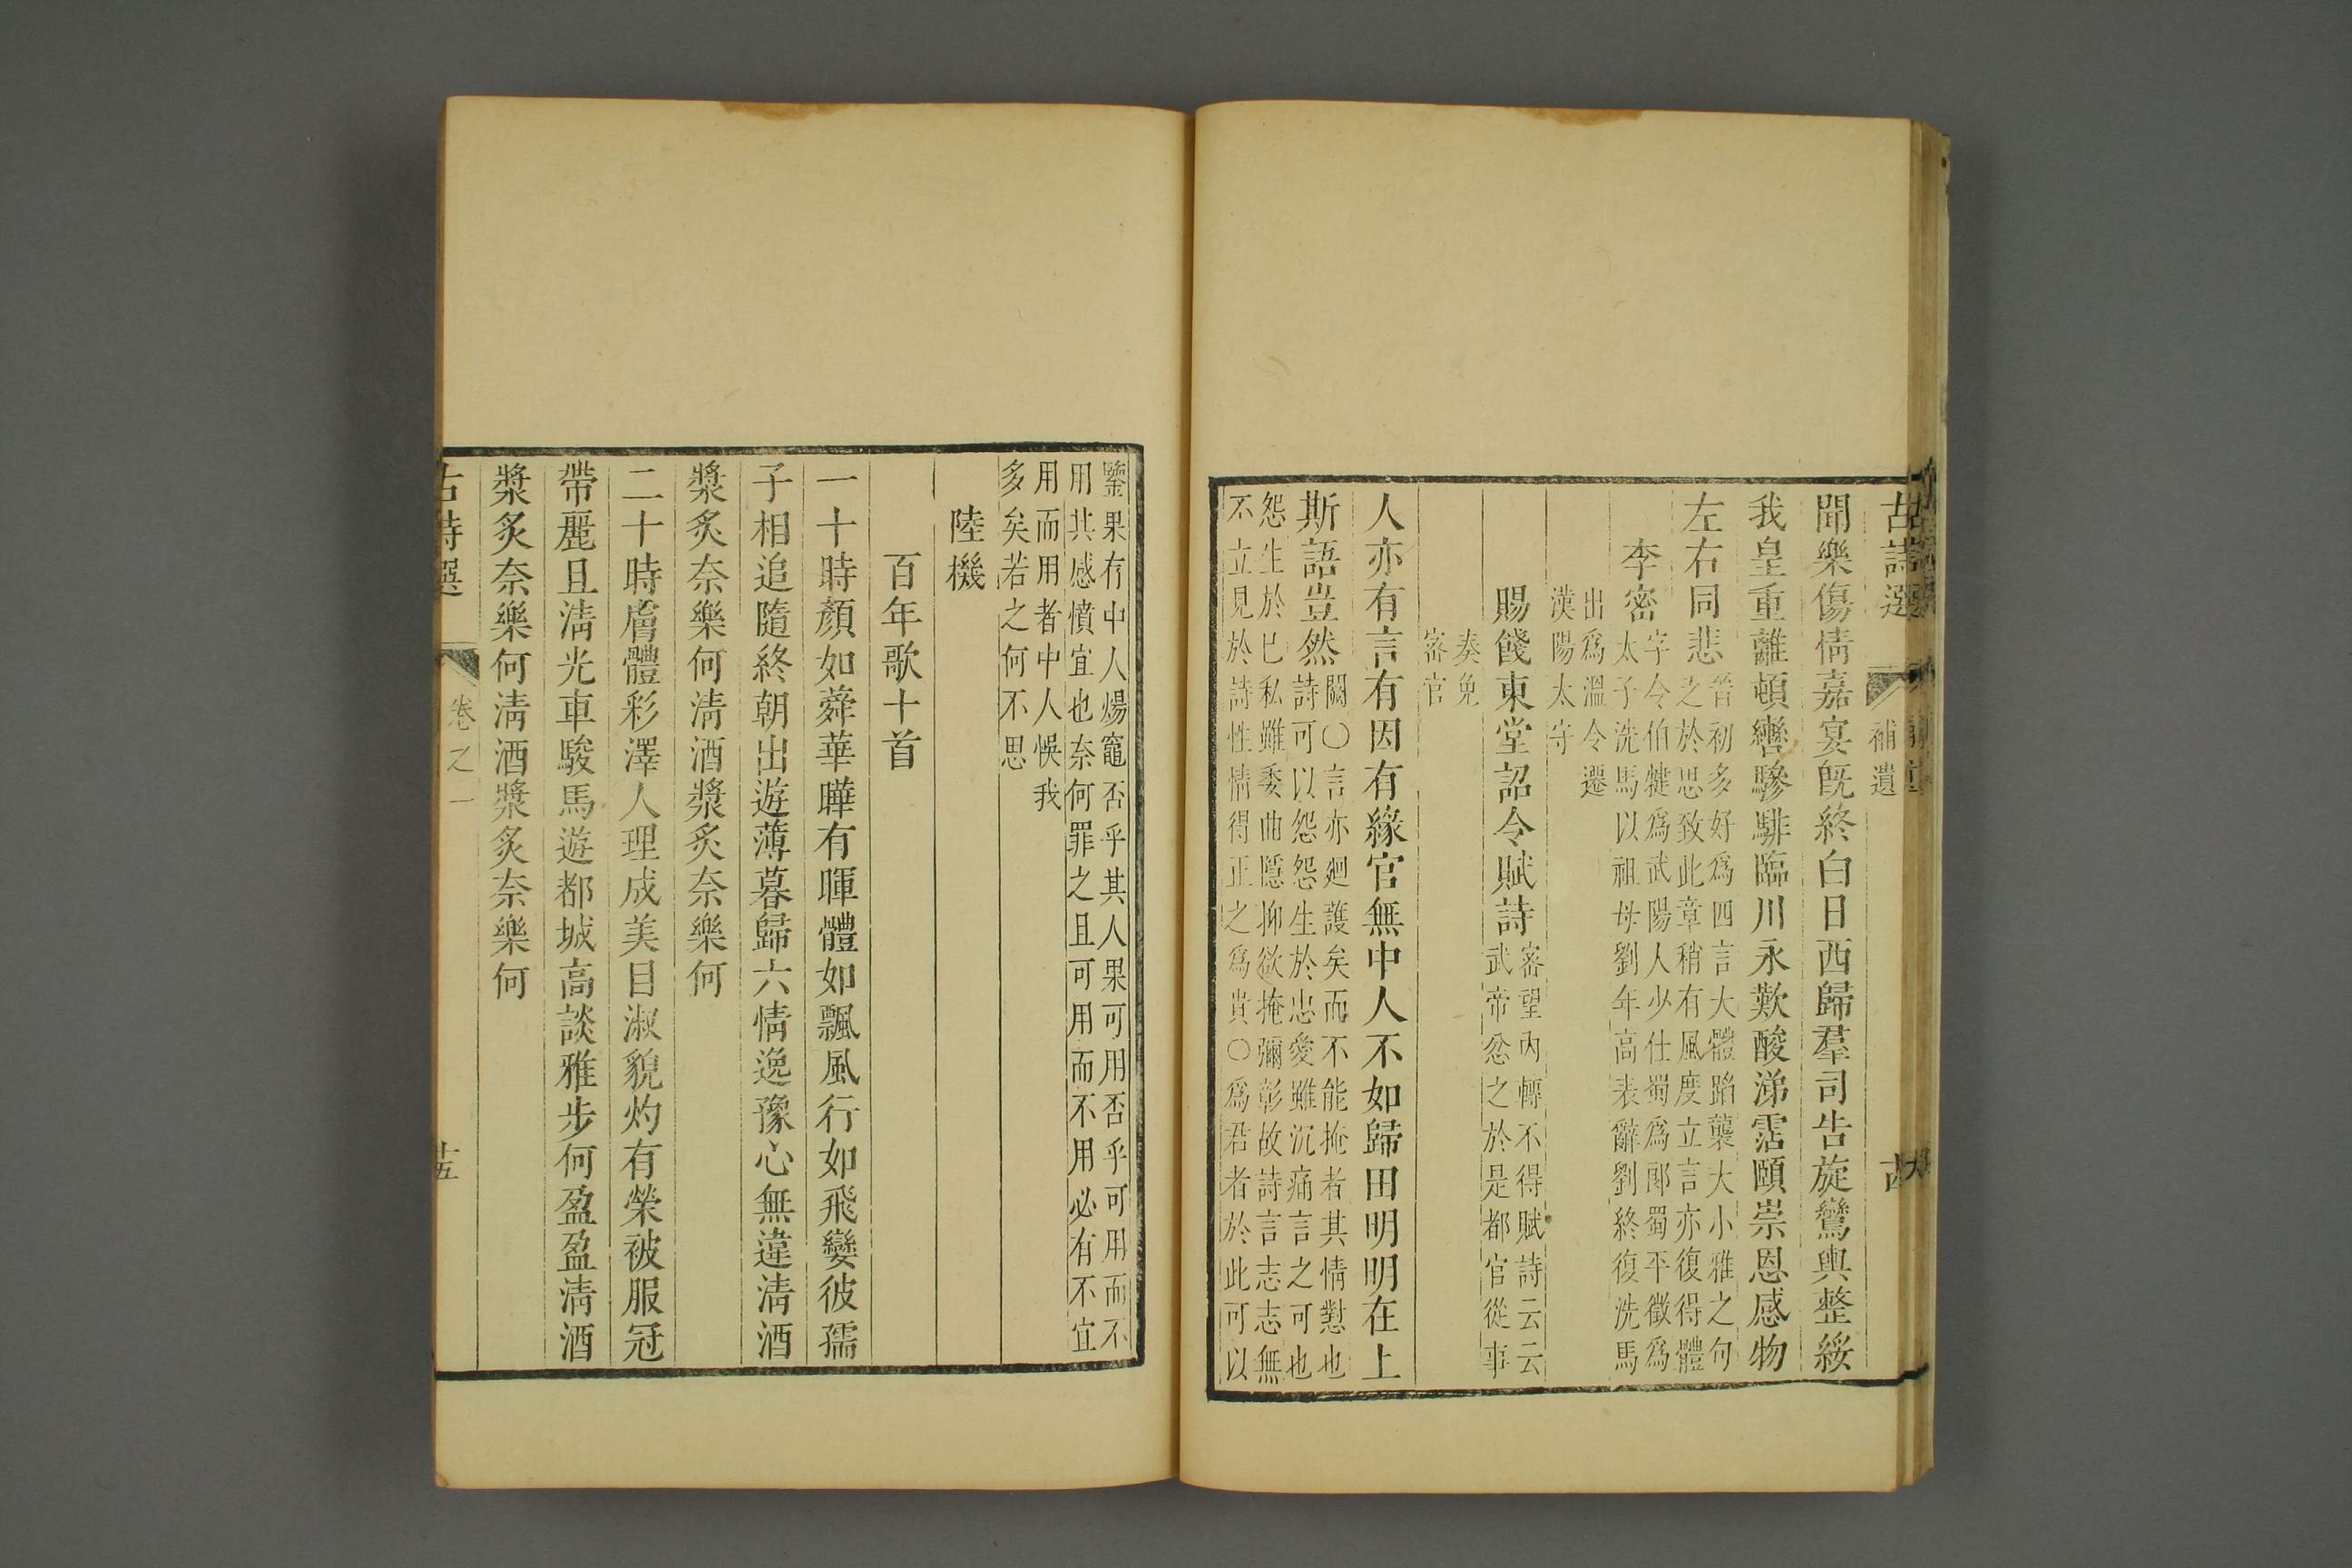 古詩選
補遺
聞樂傷情嘉宴旣終白日西歸羣司告旋鸞輿整綏
我皇重離頓轡驂騑臨川永歎酸涕霑頤崇恩感物
左右同悲
晉初多好爲四言大體蹈襲大小雅之句
之於思致此章稍有風度立言亦復得體
李密
字令伯犍爲武陽人少仕蜀爲郎蜀平徵爲
太子洗馬以祖母劉年高表辭劉終復洗馬
出爲溫令遷
漢陽太守
賜餞東堂詔令賦詩
密望內轉不得賦詩云云
武帝忿之於是都官從事
奏免
密官
人亦有言有因有緣官無中人不如歸田明明在上
斯語豈然
闕○言亦廻護矣而不能掩者其情懟也
詩可以怨怨生於忠愛雖沉痛言之可也
怨生於已私雖委曲隱抑欲掩彌彰故詩言志志無
不立見於詩性情得正之爲貴○爲君者於此可以
鑒果有中人煬竈否乎其人果可用否乎可用而不
用其感憤宜也奈何罪之且可用而不用必有不宜
用而用者中人悞我
多矣若之何不思
陸機
百年歌十首
一十時顏如蕣華曄有暉體如飄風行如飛孌彼孺
子相追隨終朝出遊薄暮歸六情逸豫心無違淸酒
漿炙奈樂何淸酒漿炙奈樂何
二十時膚體彩澤人理成美目淑貌灼有榮被服冠
帶麗且淸光車駿馬遊都城高談雅步何盈盈淸酒
漿炙奈樂何淸酒漿炙奈樂何
古詩選
卷之一
十五